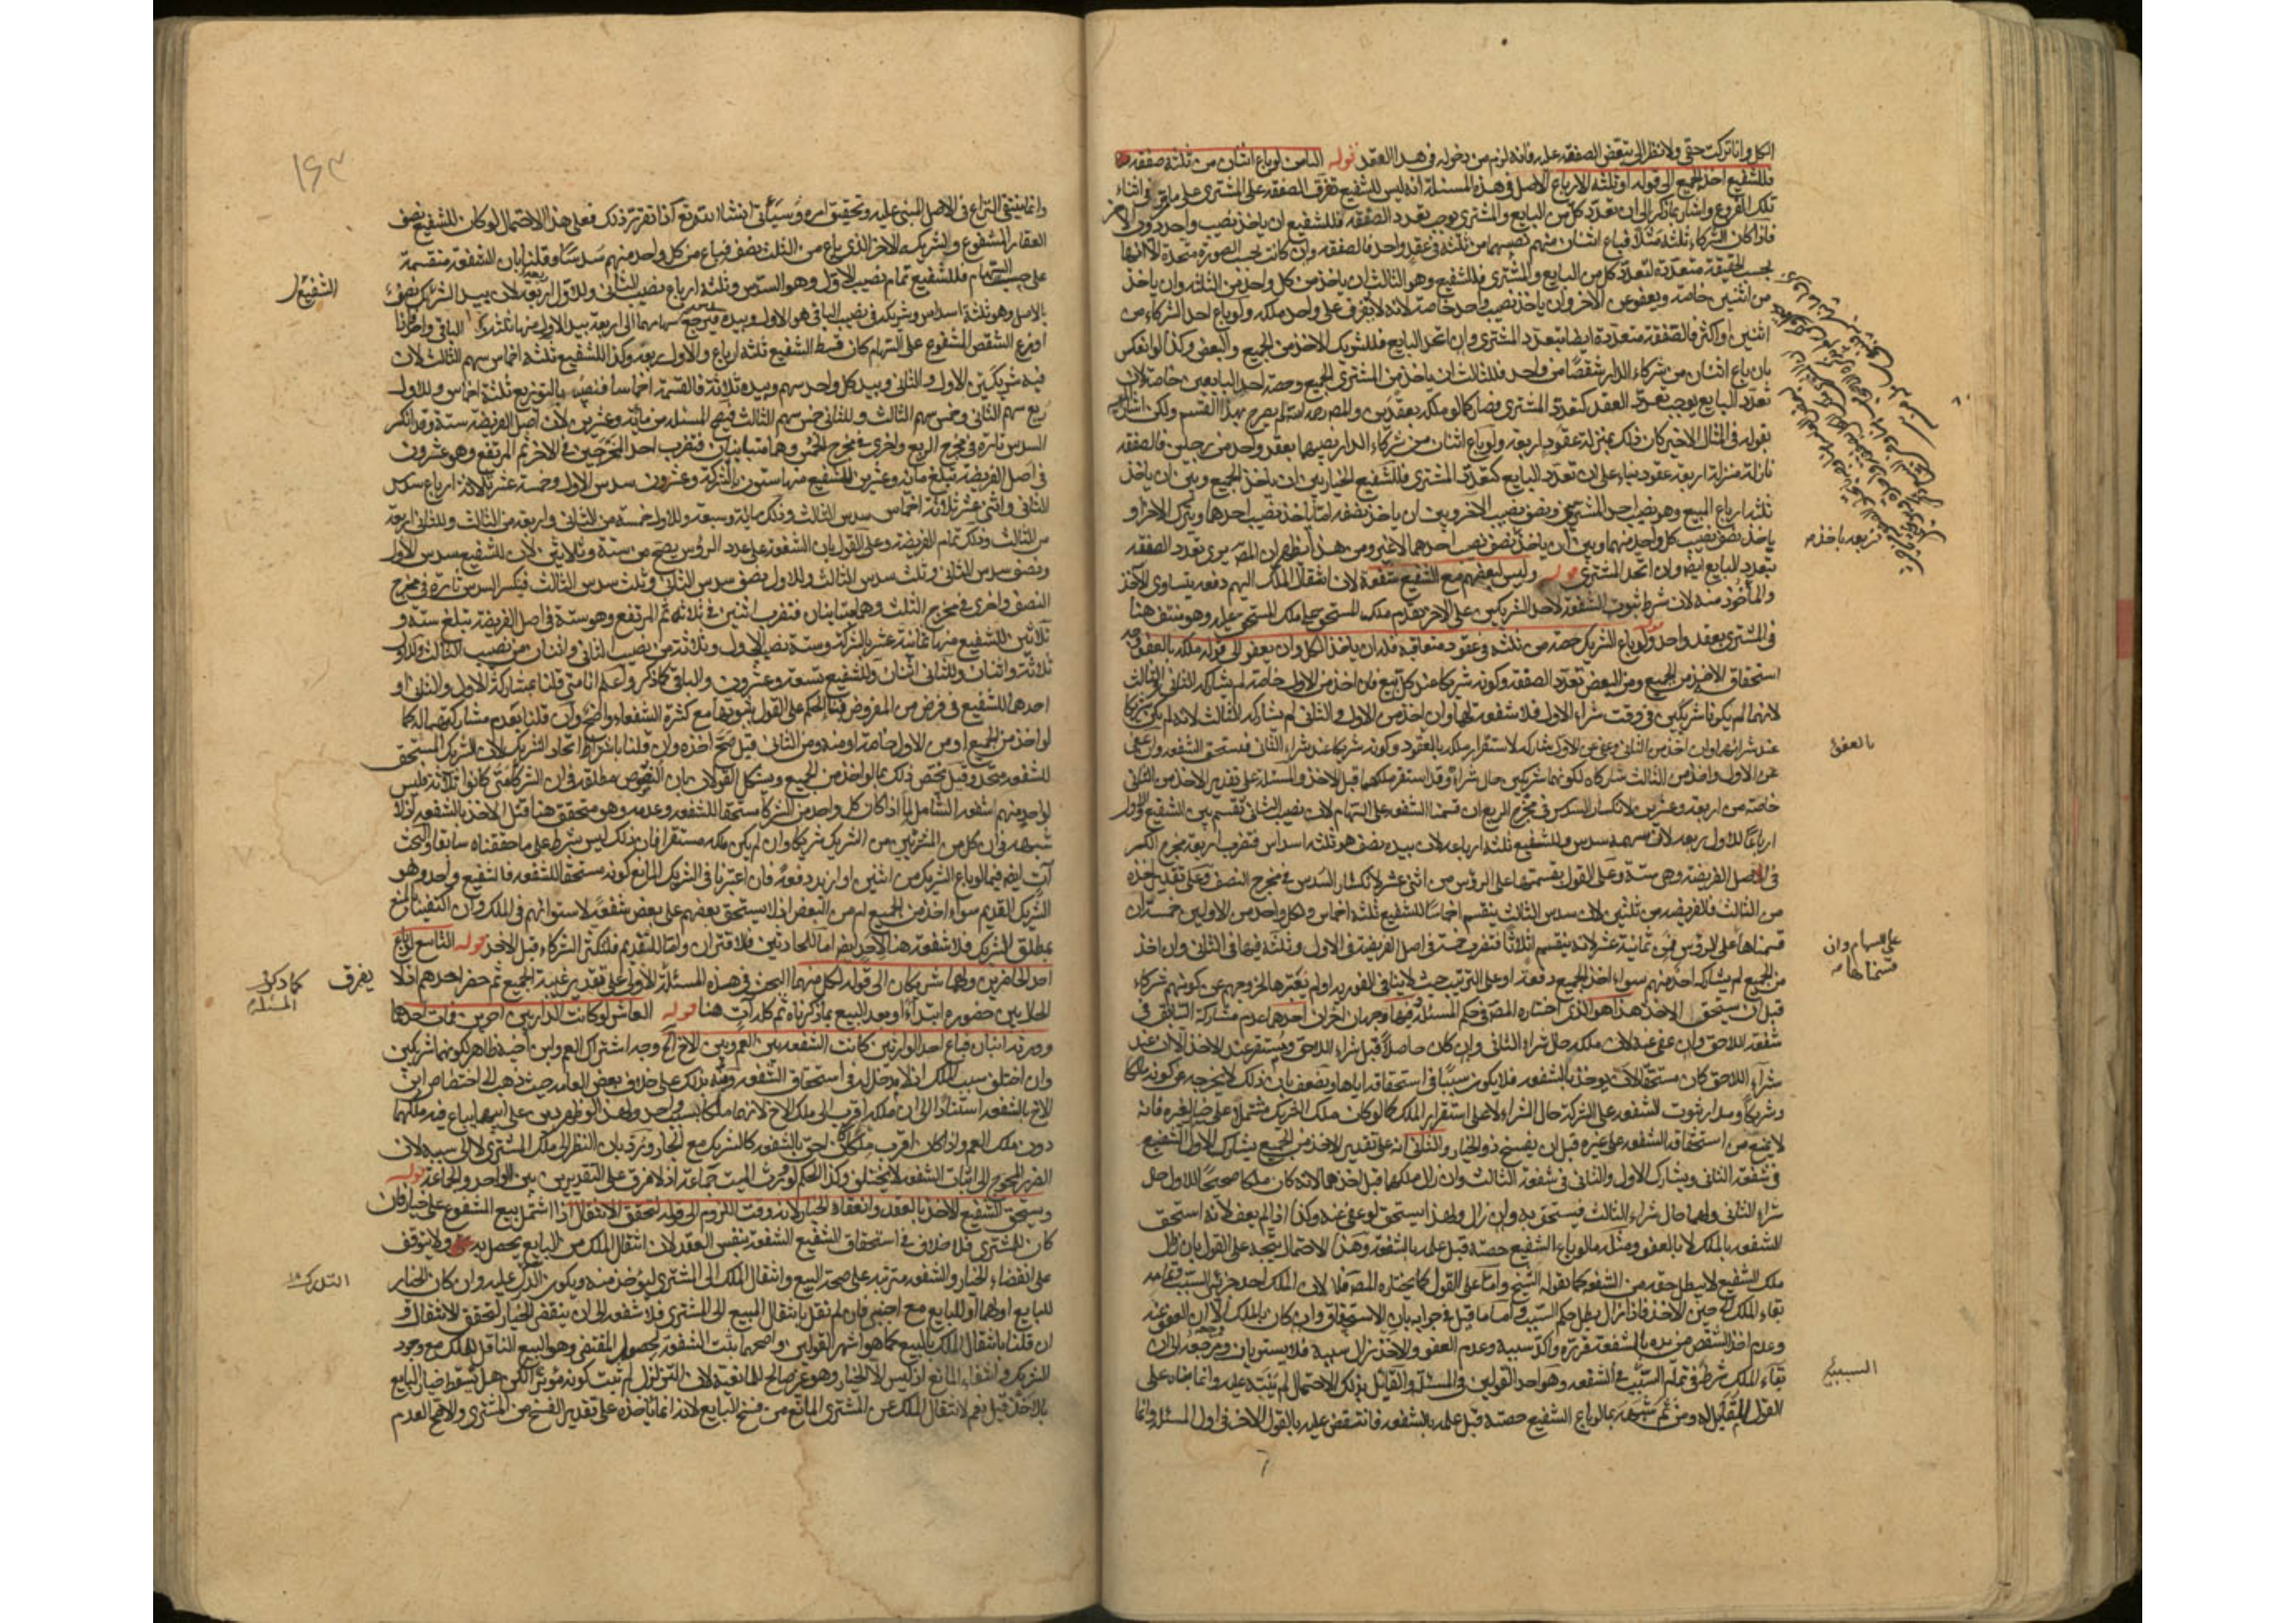 الكل وانا تركت حقى ولا نظر الى تبعض الصفقة عليه فانه لزم من دخوله فى هذا العقد قوله الثامن لو باع اثنان من ثلثة صفقة
فللشفيع اخذ الجميع الى قوله او ثلثة الارباع الاصل فى هذه المسئلة انه ليس للشفيع تفريق الصفقة على المشترى على ما مر فى اثناء
تلك الفروع واشار بما ذكر الى ان تعدد كل من البايع والمشترى يوجب تعدد الصفقة فللشفيع ان ياخذ نصيب واحد دون الآخر
فاذا كان الشركاء ثلثة مثلا فباع اثنان منهم نصيبهما من ثلثة فى عقد واحد فالصفقة وان كانت بحسب الصورة متحدة الا انها
بحسب الحقيقة متعددة لتعدد كل من البايع والمشترى فللشفيع وهو الثالث ان ياخذ من كل واحد من الثلثة وان ياخذ
من اثنين خاصة ويعفو عن الآخر وان ياخذ نصيب واحد خاصة لانه لا يفرق على واحد ملكه ولو باع احد الشركاء من
اثنين او اكثر فالصفقة متعددة ايضا بتعدد المشترى وان اتحد البايع فللشريك الاخذ من الجميع والبعض وكذا لو انعكس
بان باع اثنان من شركاء الدار شقصا من واحد فللثالث ان ياخذ من المشترى الجميع وحصة احد البايعين خاصة لان
تعدد البايع يوجب تعدد العقد كتعدد المشترى فصار كما لو ملكه بعقدين والمصنف رحمه الله لم يصرح بهذا القسم ولكن اشار
بقوله فى المثال الاخير كان ذلك بمنزلة عقود اربعة ولو باع اثنان من شركاء الدار نصيبهما بعقد واحد من رجلين فالصفقة
نازلة منزلة اربعة عقود بناء على ان تعدد البايع كتعدد المشترى فللشفيع الخيار بين ان ياخذ الجميع وبين ان ياخذ
ثلثة ارباع المبيع وهو نصيب احد المشتريين ونصف نصيب الآخر وبين ان ياخذ نصفه اما باخذ نصيب احدهما وبترك الآخر او
ياخذ نصف نصيب كل واحد منهما وبين ان ياخذ نصف نصيب احدهما لا غير ومن هذا يظهر ان المصنف يرى تعدد الصفقة
بتعدد البايع ايضا وان اتحد المشترى قوله وليس لبعضهم مع الشفيع شفعة لان انتقال الملك اليهم دفعة يتساوى الآخذ
والمأخوذ منه لان شرط ثبوت الشفعة لاحد الشريكين على الآخر تقدم ملك المستحق على ملك المستحق عليه وهو منتف هنا
فى المشترى بعقد واحد قوله ولو باع الشريك حصة من ثلثة فى عقود متعاقبة فله ان ياخذ الكل وان يعفو الى قوله ملكه بالعفو
استحقاق الاخذ من الجميع ومن البعض تعدد الصفقة وكونه شريكا عند كل بيع فان اخذ من الاول خاصة لم يشاركه الثانى والثالث
لانهما لم يكونا شريكين فى وقت شراء الاول فلا شفعة لهما وان اخذ من الاول والثانى لم يشاركه الثالث لانه لم يكن شريكا
عند شرائهما وان اخذ من الثانى وعفى عن الاول شاركه لاستقرار ملكه بالعفو وكونه شريكا عند شراء الثانى فيستحق الشفعة وان عفى
عن الاول واخذ من الثالث شاركاه لكونهما شريكين حال شرائه وقد استقر ملكهما قبل الاخذ والمسئلة على تقدير الاخذ من الثانى
خاصة من اربعة وعشرين لانكسار السدس فى مخرج الربع ان قسمنا الشفعة على السهام لان نصيب الثانى يقسم بين الشفيع والاول
ارباعا للاول ربعه لان سهمه سدس وللشفيع ثلثة ارباعه لان بيده نصف هو ثلثة اسداس فتضرب اربعة مخرج الكسر
فى اصل الفريضة وهى ستة وعلى القول بقسمتها على الرؤس من اثنى عشر لانكسار السدس فى مخرج النصف وعلى تقدير اخذه
من الثالث فالفريضة من ثلثين لان سدس الثالث ينقسم اخماسا للشفيع ثلثة اخماس ولكل واحد من الاولين خمس ان
قسمناها على الرؤس فمن ثمانية عشر لانه ينقسم اثلاثا فتضرب
من الجميع لم يشاركه احد منهم سواء اخذ الجميع دفعة او على الترتيب حيث لا ينافى الفورية او لم يعتبرها لخروجهم عن كونهم شركاء
قبل ان يستحق الاخذ هذا هو الذى اختاره المصنف فى حكم المسئلة وفيها وجهان آخران احدهما عدم مشاركة السابق فى
شفعة اللاحق وان عفى عنه لان ملكه حال شراء الثانى وان كان حاصلا قبل شراء اللاحق ويستقر عند الاخذ الا انه عند
شراء اللاحق كان مستحقا لان يوخذ بالشفعة فلا يكون سببا فى استحقاقه اياها ويضعف بان ذلك لا يخرجه عن كونه ملكا
وشريكا ومدار ثبوت الشفعة على الشركة حال الشراء لا على استقرار الملك كما لو كان ملك الشريك مشتملا على خيار لغيره فانه
لا يمنع من استحقاقه الشفعة على غيره قبل ان يفسخ ذو الخيار والثانى انه على تقدير الاخذ من الجميع يشارك الاول الشفيع
فى شفعة الثانى ويشارك الاول والثانى فى شفعة الثالث وان زال ملكهما قبل اخذهما لانه كان ملكا صحيحا للاول حال
شراء الثانى ولهما حال شراء الثالث فيستحق به وان زال ولهذا يستحق لو عفى عنه وكذا اذا لم يعف لانه استحق
الشفعة بالملك لا بالعفو ومثله ما لو باع الشفيع حصته قبل علمه بالشفعة وهذا الاحتمال يتجه على القول بان زوال
ملك الشفيع لا يبطل حقه من الشفعة كما يقوله الشيخ واما على القول كما يختاره المصنف فلا لان الملك احد جزئى السبب فيعتبر
بقاء الملك الى حين الاخذ فاذا زال بطل حكم السبب واما ما قيل فى جوابه بان الاستحقاق وان كان بالملك الا ان العفو عنه
وعدم اخذ الشقص من يده بالشفعة قرره واكد سببيته وعدم العفو والاخذ نزل سببيته فلا يستويان ومرجعه الى ان
بقاء الملك شرط فى تمام السبب فى الشفعة وهو احد القولين فى المسئلة والقائل بذلك الاحتمال لم يبنه عليه وانما بناه على
القول المقابل له ومن ثم شبهه بما لو باع الشفيع حصته قبل علمه بالشفعة فانتقض عليه بالقول الآخر فى اول المسئلة وانما
بالعفو
على السهام وان قسمناها
السببية
وانما ينبغى النزاع فى الاصل المبنى عليه وتحقيق امره وسيأتى انشاء الله تع اذا تقرر ذلك فعلى هذا الاحتمال لو كان للشفيع نصف
العقار المشفوع والشريك الآخر الذى باع من الثلثة نصف فباع من كل واحد منهم سدسا وقلنا بان الشفعة منقسمة
على حسب السهام فللشفيع تمام نصيب الاول وهو السدس وثلثة ارباع نصيب الثانى وللاول ربعه لان بيد الشريك نصف
بالاصل وهو ثلثة اسداس وشريكه فى نصيب الباقى هو الاول وبيده سدس فيرجع سهامهما الى اربعة بيد الاول منها
او وزع الشقص المشفوع على السهام كان قسط الشفيع ثلثة ارباع والاول ربعه وكذا للشفيع ثلثة اخماس سهم الثالث لان
فيه شريكين الاول والثانى وبيد كل واحد سهم وبيده ثلاثة فالقسمة اخماسا فنصيبه بالتوزيع ثلثة اخماس وللاول
ربع سهم الثانى وخمس سهم الثالث وللثانى خمس سهم الثالث فتصح المسئلة من مائة وعشرين لان اصل الفريضة ستة وقد انكسر
السدس تارة فى مخرج الربع واخرى فى مخرج الخمس وهما متباينان فتضرب احد المخرجين فى الآخر ثم المرتفع وهو عشرون
فى اصل الفريضة تبلغ مائة وعشرين للشفيع منها ستون بالشركة وعشرون سدس الاول وخمسة عشر ثلاثة ارباع سدس
الثانى واثنى عشر ثلاثة اخماس سدس الثالث وذلك مائة وسبعة وللاول خمسة من الثانى واربعة من الثالث وللثانى اربعة
من الثالث وذلك تمام الفريضة وعلى القول بان الشفعة على عدد الرؤس يصح من ستة وثلاثين لان للشفيع سدس الاول
ونصف سدس الثانى وثلث سدس الثالث وللاول نصف سدس الثانى وثلث سدس الثالث فينكسر السدس تارة فى مخرج
النصف واخرى فى مخرج الثلث وهما متباينان فتضرب اثنين فى ثلاثة ثم المرتفع وهو ستة فى اصل الفريضة تبلغ ستة و
ثلاثين للشفيع منها ثمانية عشر بالشركة وستة نصيب الاول وثلاثة من نصيب الثانى واثنان من نصيب الثالث وللاول
ثلاثة واثنان وللثانى اثنان وللشفيع تسعة وعشرون والباقى كما ذكر واعلم انا متى قلنا بمشاركة الاول والثانى او
احدهما للشفيع فى فرض من المفروض فبناء الحكم على القول بثبوتها مع كثرة الشفعاء واضح وان قلنا بعدم مشاركتهما له كما
لو اخذ من الجميع او من الاول خاصة او منه ومن الثانى قيل صح اخذه وان قلنا باشتراط اتحاد الشريك لان الشريك المستحق
للشفعة متحد وقيل يختص ذلك بما لو اخذ من الجميع ويشكل القولان بان النصوص مطلقة فى ان الشركاء متى كانوا ثلاثة فليس
لواحد منهم شفعة الشامل لما اذا كان كل واحد من الشركاء مستحقا للشفعة وعدمه وهو متحقق هنا قبل الاخذ بالشفعة اذ لا
شبهة فى ان كل من المشترين من الشريك شريكا وان لم يكن ملكه مستقرا فان ذلك ليس شرط على ما حققناه سابقا والبحث
آت ايضا فيما لو باع الشريك من اثنين او ازيد دفعة فان اعتبرنا فى الشريك المانع كونه مستحقا للشفعة فالشفيع واحد وهو
الشريك القديم سواء اخذ من الجميع ام من البعض اذ لا يستحق بعضهم على بعض شفعة لاستوائهم فى الملك وان اكتفينا بالمنع
بمطلق الشريك فلا شفعة هنا لاحد ايضا اما للحادثين فللاقتران واما للمتقدم فلتكثر الشركاء قبل الاخذ قوله التاسع لو باع
احد الحاضرين ولهما شريكان الى قوله لكل منهما البحث فى هذه المسئلة الاولى على تقدير غيبة الجميع ثم حضر احدهم اذ لا
الحال بين حضوره ابتداء او بعد البيع بما ذكرناه ثم كله آت هنا قوله العاشر لو كانت الدار بين اخوين فمات احدهما
وورثه ابنان فباع احد الوارثين كانت الشفعة بين العم وبين الاخ الخ وجه اشتراك العم وابن اخيه ظاهر لكونهما شريكين
وان اختلف سبب الملك اذ لا مدخل له فى استحقاق الشفعة ونبه بذلك على خلاف بعض العامة حيث ذهب الى اختصاص ابن
الاخ بالشفعة استنادا الى ان ملكه اقرب الى ملك الاخ لانهما ملكا بسبب واحد ولهذا لو ظهر دين على ابيهما يباع فيه ملكهما
دون ملك العم واذا كان اقرب ملكا كان احق بالشفعة كالشريك مع الجار ويرد بان النظر الى ملك المشترى لا الى سببه لان
الضرر المحوج الى اثبات الشفعة لا يختلف وكذا الحكم لو ورث الميت جماعة اذ لا فرق على التقديرين بين الواحد والجماعة قوله
ويستحق الشفيع الاخذ بالعقد وانقضاء الخيار لانه وقت اللزوم الى قوله لتحقق الانتقال اذا اشتمل بيع المشفوع على خيار فان
كان للمشترى فلا خلاف فى استحقاق الشفيع الشفعة بنفس العقد لان انتقال الملك من البايع يحصل به ولا يتوقف
على انقضاء الخيار والشفعة مترتبة على صحة البيع وانتقال الملك الى المشترى ليؤخذ منه ويكون الدرك عليه وان كان الخيار
للبايع او لهما او للبايع مع اجنبى فان لم نقل بانتقال المبيع الى المشترى فلا شفعة الى ان ينقضى الخيار لتحقق الانتقال و
ان قلنا بانتقال الملك بالبيع كما هو اشهر القولين واصحهما يثبت الشفعة لحصول المقتضى وهو البيع الناقل للملك مع وجود
الشريك وانتفاء المانع اذ ليس الا الخيار وهو غير صالح للمانعية لان التزلزل لم يثبت كونه مؤثرا لكن هل يسقط خيار البايع
بالاخذ قيل نعم لانتقال الملك عن المشترى المانع من فسخ البايع لانه انما ياخذه على تقدير الفسخ من المشترى والاصح العدم
الشفيع
يفرق كما ذكر فى المسئلة
الدرك